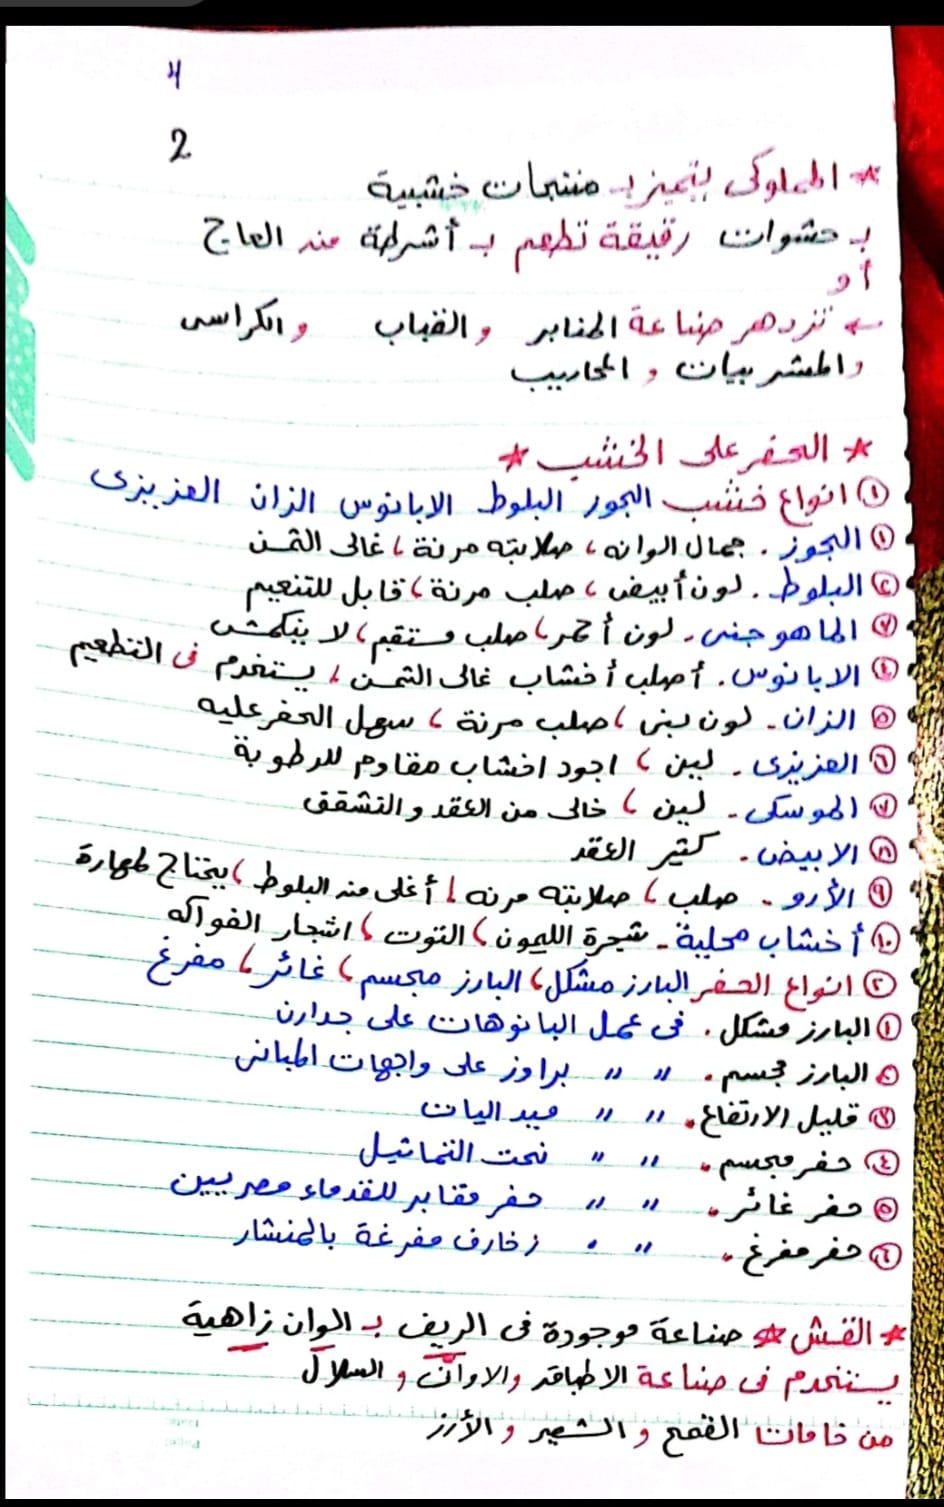 4
2
* المملوكى يتميز بـ منتجات خشبية
بـ حشوات رقيقة تطعم بـ أشرطة من العاج
أو
← تزدهر صناعة المنابر والقباب والكراسى
والمشربيات والمحاريب
* الحفر على الخشب *
① انواع خشب الجوز البلوط الابانوس الزان العزيزى
① الجوز . جمال الوانه ، صلابته مرنة ، غالى الثمن
② البلوط . لون أبيض ، صلب مرنة ، قابل للتنعيم
③ الماهوجنى . لون أحمر ، صلب مستقيم ، لا ينكمش
④ الابانوس . أصلب أخشاب غالى الثمن ، يستخدم فى التطعيم
⑤ الزان . لون بنى ، صلب مرنة ، سهل الحفر عليه
⑥ العزيزى . لين ، اجود اخشاب مقاوم للرطوبة
⑦ الموسكى . لين ، خالى من العقد والتشقق
⑧ الابيض . كثير العقد
⑨ الأرو . صلب ، صلابته مرنه ، أغلى من البلوط ، يحتاج لمهارة
⑩ أخشاب محلية . شجرة الليمون ، التوت ، اشجار الفواكه
② انواع الحفر البارز مشكل ، البارز مجسم ، غائر ، مفرغ
① البارز مشكل . فى عمل البانوهات على جدارن
② البارز مجسم . " " براوز على واجهات المبانى
③ قليل الارتفاع . " " ميداليات
④ حفر مجسم . " " نحت التماثيل
⑤ حفر غائر . " " حفر مقابر للقدماء مصريين
⑥ حفر مفرغ . " " زخارف مفرغة بالمنشار
* القش * صناعة موجودة فى الريف بـ الوان زاهية
يستخدم فى صناعة الاطباق والاوان والسلال
من خامات القمح والشعير والأرز